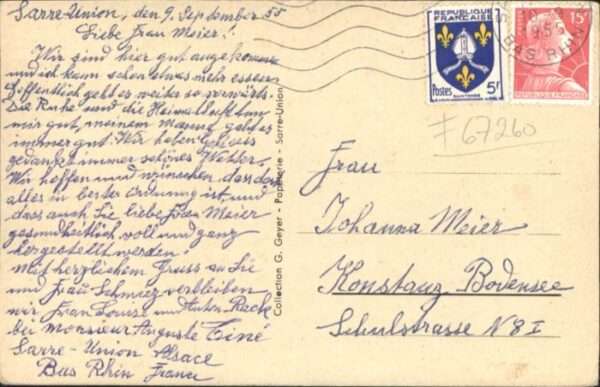 Sarre-Union, den 9. September 55
Liebe Frau Meier!
Wir sind hier gut angekommen
und ich kann schon etwas mehr essen
Hoffentlich geht es weiter so vorwärts.
Die Ruhe und die Heimatluft tun
mir gut, meinem Mann geht es
immer gut. Wir haben
immer schönes Wetter.
Wir hoffen und wünschen das
alles in bester Ordnung ist, und
dass auch Sie liebe Frau Meier
gesundheitlich voll und ganz
hergestellt werden!
Mit herzlichem Gruss an Sie
und Frau verbleiben
wir Frau Louise und Anton Reck
bei Monsieur Auguste Tiné
Sarre-Union Alsace
Bas Rhin France
Collection G. Geyer - Papeterie - Sarre-Union
REPUBLIQUE
FRANÇAISE
Postes 5F
15F
REPUBLIQUE FRANÇAISE
1955
BAS RHIN
F 67260
Frau
Johanna Meier
Konstanz Bodensee
Schulstrasse N 8 I